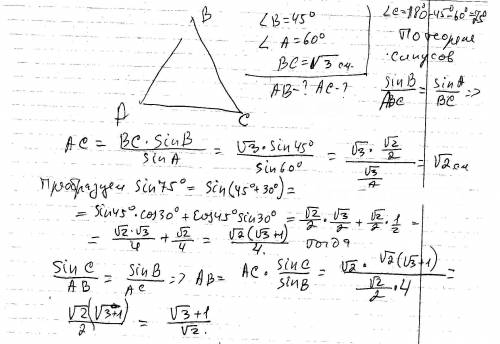 B
A
C
∠B=45°
∠A=60°
BC=√3 см.
AB-? AC-?
∠C=180°-45°-60°=75°
По теореме
синусов
sinB/ABC = sinA/BC =>
AC = BC·sinB/sinA = √3·sin45°/sin60° = (√3·√2/2)/(√3/2) = √2 см
Преобразуем sin75° = sin(45°+30°)=
= sin45°·cos30°+cos45°sin30° = √2/2·√3/2+√2/2·1/2 =
= √2·√3/4+√2/4 = √2(√3+1)/4. тогда
sinC/AB = sinB/AC => AB= AC·sinC/sinB = √2·√2(√3+1)/(√2/2·4) =
√2(√3+1)/2 = √3+1/√2.